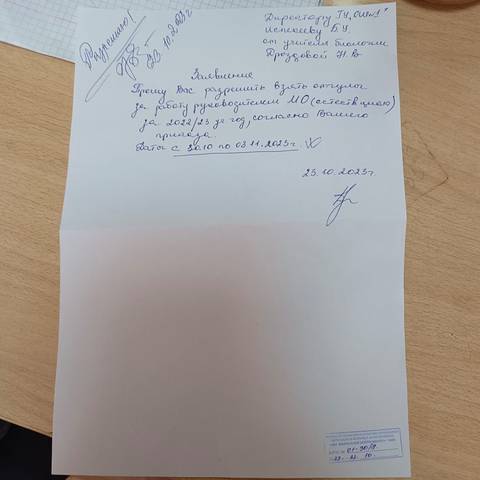 Разрешаю!
23.10.2023г
Директору ГУ "ОШ№1"
Искакову Б У
от учителя биологии
Дроздовой Н.В
Заявление
Прошу Вас разрешить взять отгулы
за работу руководителем МО (естеств цикла)
за 2022/23 уч год, согласно Вашего
приказа.
Даты с 30.10 по 03.11.2023г.
23.10.2023г.
01-30/9